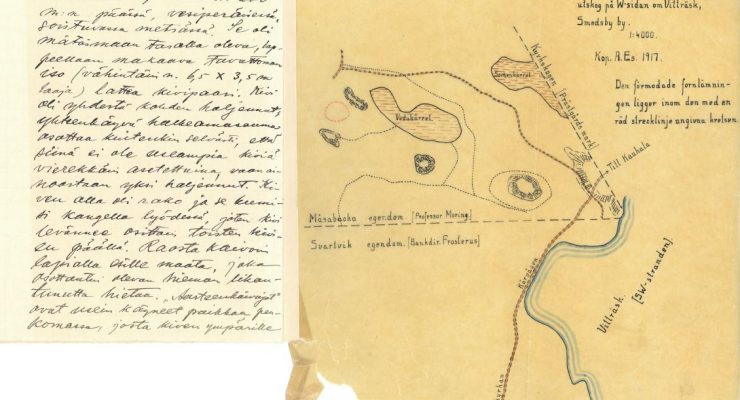 m:n päässä, vesiperäisessä,
soistuvassa metsässä. Se oli
mätäsmaan tasalla oleva, lap-
peellaan makaava tavattoman
iso (vähintäin n. 6,5 X 3,5 m
laaja) laakea kivipaasi. Kivi
oli yhdestä kohden haljennut,
yhteenkäypä halkeamasauma
osottaa kuitenkin selvästi, että
siinä ei ole useampia kiviä
vierekkäin asetettuina, vaan ai-
noastaan yksi haljennut. Ki-
ven alla oli rako ja se kumi-
si kangella lyödessä, joten kivi
levännee osittain toisten kivi-
en päällä. Raosta kaivoin
lapialla esille maata, joka
osottautui olevan hieman likaan-
tunutta hietaa. „Aarteenkaivajat”
ovat usein käyneet paikkaa pen-
komassa, josta kiven ympärille
utskog på W-sidan om Vitträsk,
Smedsby by.
1:4000.
Kop. A.Es. 1917.
Den förmodade fornlämnin-
gen ligger inom den med en
röd strecklinje angivna kretsen.
Kyrkskogen (Prästgårds mark)
Vedakärret
Till Kauhala
Måsabacka egendom (Professor Moring)
Svartvik egendom. (Bankdir. Frosterus)
Körvägen
Vitträsk [SW-stranden]